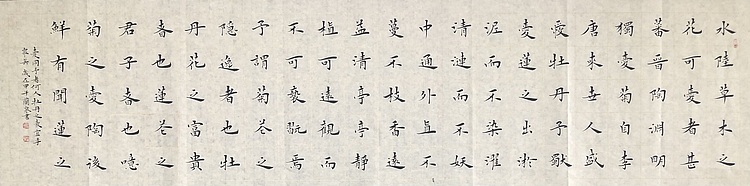 水陸草木之
花可愛者甚
蕃晉陶淵明
獨愛菊自李
唐來世人盛
愛牡丹予獨
愛蓮之出淤
泥而不染濯
清漣而不妖
中通外直不
蔓不枝香遠
益清亭亭靜
不可遠觀而
不可褻翫焉
予謂菊花之
隱逸者也牡
丹花之富貴
者也蓮花之
君子者也噫
菊之愛陶後
鮮有聞蓮之
愛同予者何人牡丹之愛宜乎
眾矣 歲在甲午書